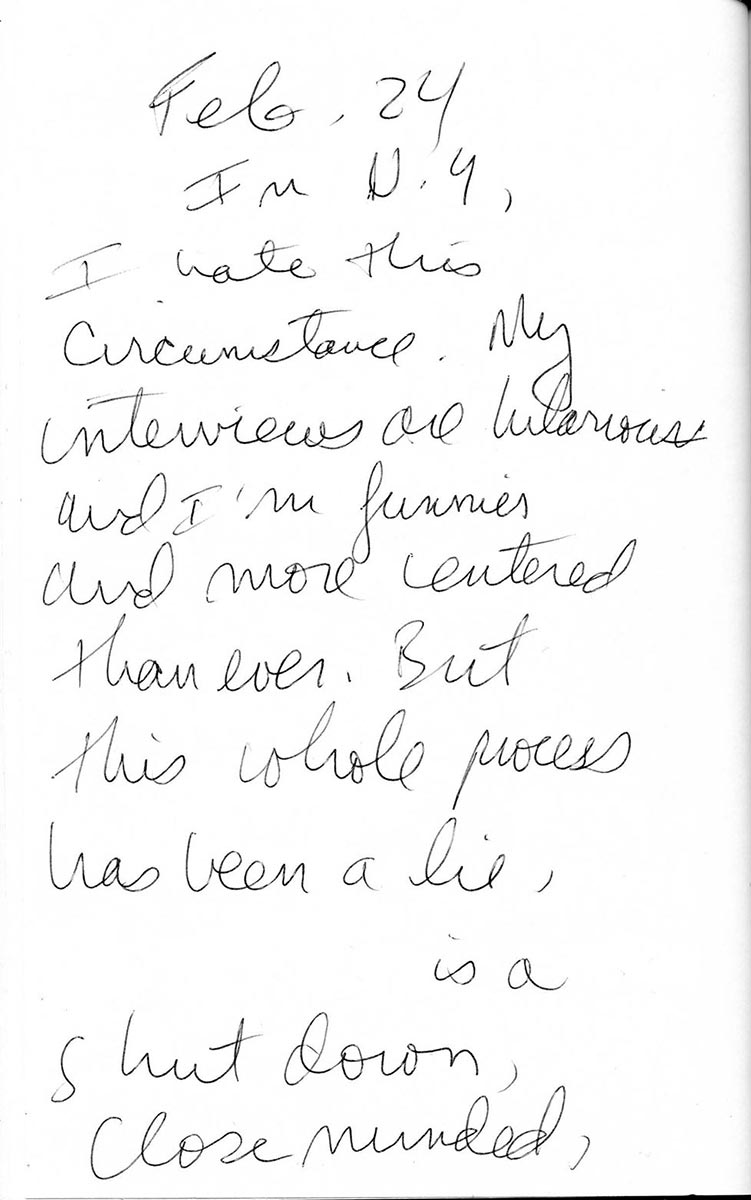 Feb. 24
In N.Y,
I hate this
circumstance. My
interviews are hilarious
and I'm funnier
and more centered
than ever. But
this whole process
has been a lie,
is a
shut down,
close minded,